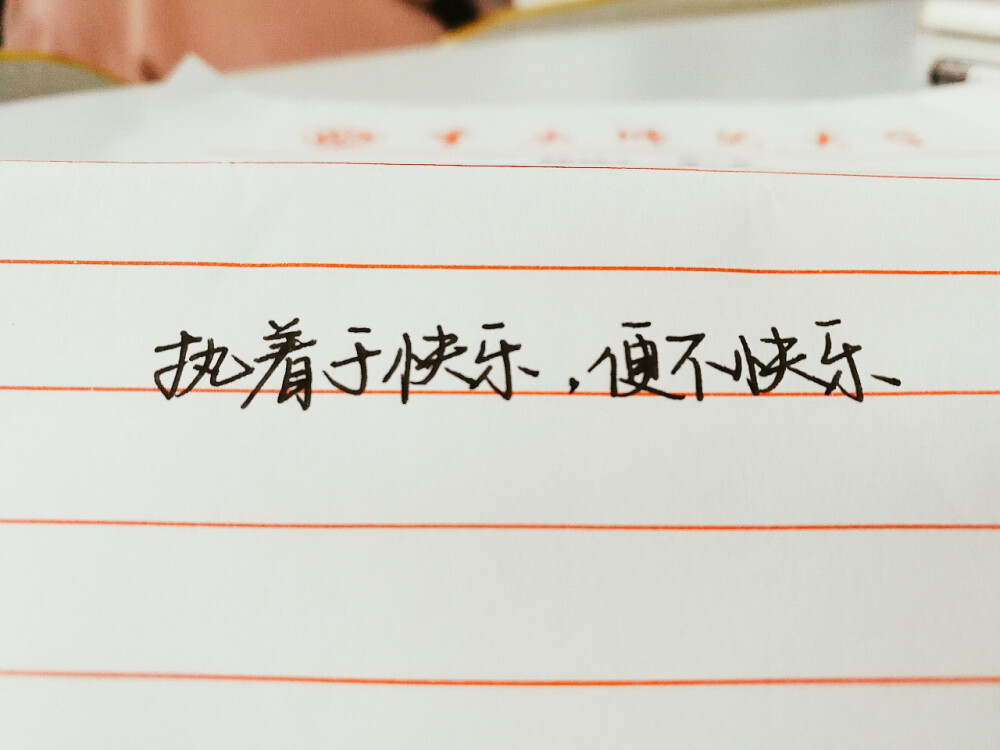 执着于快乐，便不快乐